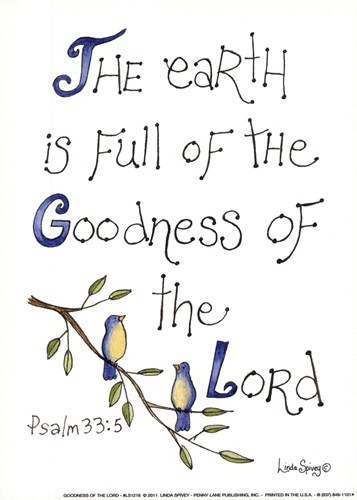 The earth
is full of the
Goodness of
the
Lord
Psalm 33:5
Linda Spivey ©
GOODNESS OF THE LORD - #LS1218 © 2011 LINDA SPIVEY - PENNY LANE PUBLISHING, INC. - PRINTED IN THE U.S.A. - ® (937) 849-1101